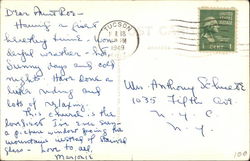 Dear Aunt Ros-
Having a first
breathing time. Won-
derful weather - hot
sunny days and cold
nights. Have done a
little riding and
lots of relaxing.
This church is the
loveliest I've ever seen
a picture window facing the
mountains instead of stained
glass - Love to all
Marjorie
TUCSON
1949
POST CARD
Mrs. Anthony Schultz
1035 Fifth Ave.
N.Y.C.
N.Y.